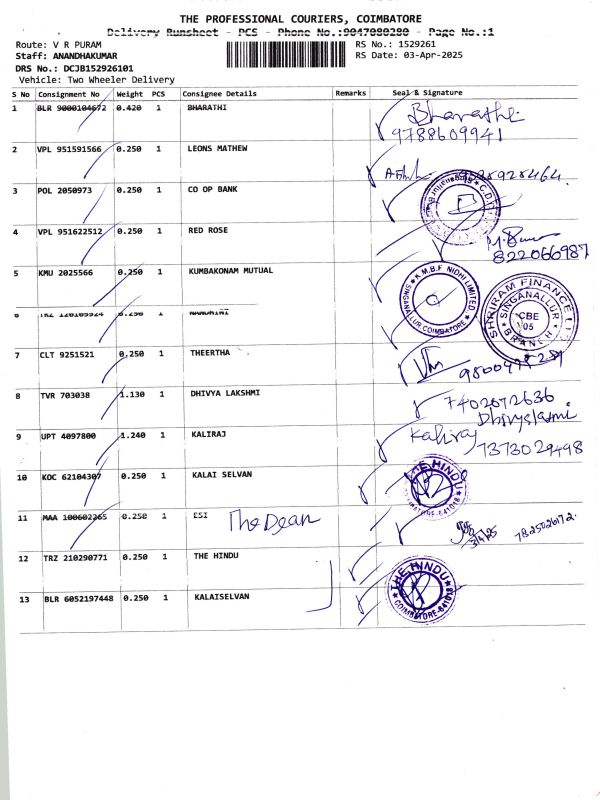 THE PROFESSIONAL COURIERS, COIMBATORE
Delivery Runsheet - PCS - Phone No.:9047080280 - Page No.:1
Route: V R PURAM
RS No.: 1529261
Staff: ANANDHAKUMAR
RS Date: 03-Apr-2025
DRS No.: DCJB152926101
Vehicle: Two Wheeler Delivery
S No Consignment No Weight PCS Consignee Details Remarks Seal & Signature
1 BLR 9000104672 0.420 1 BHARATHI Bharathi
9788609941
2 VPL 951591566 0.250 1 LEONS MATHEW
3 POL 2050973 0.250 1 CO OP BANK
4 VPL 951622512 0.250 1 RED ROSE
822066987
5 KMU 2025566 0.250 1 KUMBAKONAM MUTUAL
K.M.B.F NIDHI LIMITED
SINGANALLUR COIMBATORE
SHRIRAM FINANCE LTD
SINGANALLUR
CBE
05
BRANCH
6 0.250 1 NANDHINI
7 CLT 9251521 0.250 1 THEERTHA
8 TVR 703038 1.130 1 DHIVYA LAKSHMI 7402072636
9 UPT 4097800 1.240 1 KALIRAJ Kaliraj
7373029498
10 KOC 62104307 0.250 1 KALAI SELVAN
THE HINDU
COIMBATORE-641018
11 MAA 100602265 0.250 1 ESI The Dean
3/4/25 7825026172
12 TRZ 210290771 0.250 1 THE HINDU
THE HINDU
COIMBATORE-641018
13 BLR 6052197448 0.250 1 KALAISELVAN